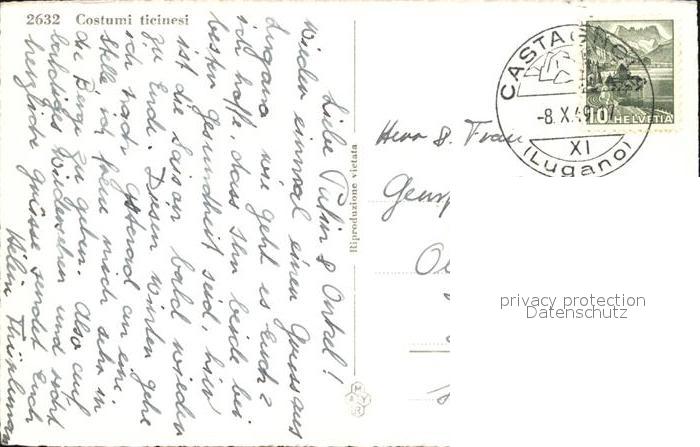 2632 Costumi ticinesi
Liebe Tante & Onkel!
Wieder einmal einen Gruss aus
Lugano wie geht es Euch?
ich hoffe, dass Ihr beide bei
bester Gesundheit seid, hier
ist die Saison bald wieder
zu Ende. Diesen Winter gehe
ich nach Gstaad an eine
Stelle, ich freue mich sehr in
die Berge zu gehen. Also auf
baldiges Wiedersehen und recht
herzliche Grüsse sendet Euch
Riproduzione vietata
CASTAGNOLA
-8.X.49
XI
(Lugano)
10 HELVETIA
Herr & Frau
privacy protection
Datenschutz